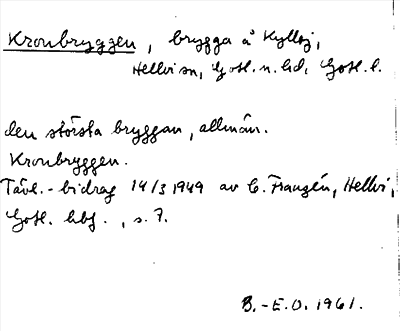 Kronbryggen, brygga å Kyllaj,
Hellvi sn, Gotl. n. hd, Gotl. l.
den största bryggan, allmän.
Kronbryggen.
Tävl.-bidrag 14/3 1949 av C. Franzén, Hellvi,
Gotl. hbf., s. 7.
B.-E.O. 1961.